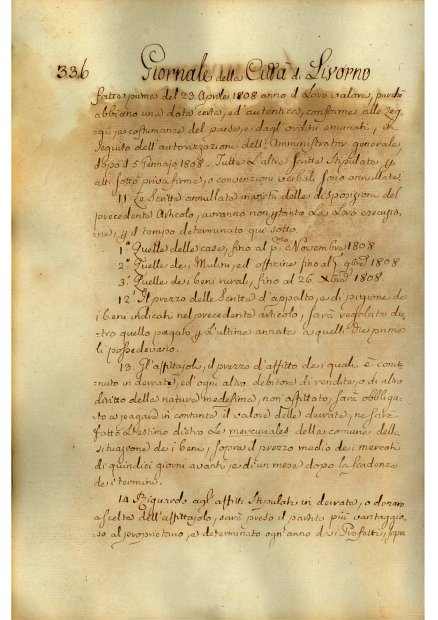 336 Giornale della Città di Livorno
fatte prima del 23. Aprile 1808 anno il loro valore, purchè
abbiano una data certa, ed autentica, conforme alle leg-
gi, e costumanze del paese, e dagli ordini emanati, in
seguito dell'autorizazioni dell'Amministrator generale
dopo il 5 Gennajo 1808. Tutte l'altre fatte, stipulate p
atti sotto privata firma, o convenzioni verbali sono annullate.
11. Le Scritte annullate in virtù delle disposizioni del
precedente Articolo, avranno non ptanto la loro esecuzio-
ne, p il tempo determinato qui sotto.
1.° Quelle delle case, fino al pmo Novembre 1808
2.° Quelle dei Mulini, ed officine fino al 1 9bre 1808
3.° Quelle dei beni rurali, fino al 26 Xbre 1808
12. Il prezzo delle Scritte d'appalto, o di pigione de
i beni indicati nel precedente articolo, sarà regolato die-
tro quello pagato p l'ultima annata a quelli che prima
li possedevano.
13. Gl'affittajoli, il prezzo d'affitto de i quali è conve-
nuto in derrate, ed ogni altro debitore di rendite, o di altro
diritto della natura medesima, non affittato, sarà obbliga-
to a pagare in contanti il valore delle derrate, ne sarà
fatto l'estimo dietro le mercuriales della comune della
situazione de i beni, sopra il prezzo medio dei mercati
di quindici giorni avanti, e di un mese dopo la scadenza
dei termini.
14. Riguardo agl'affitti stipulati in derrate, o denaro
a scelta dell'affittajolo, sarà preso il partito più vantaggio-
so al proprietario, e determinato ogn'anno dai Prefetti, sopra